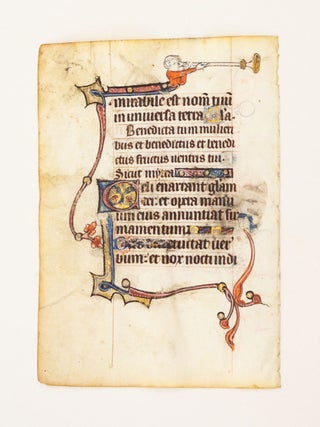 mirabile est nom tuu
in universa terra la.
Benedicta tu in mulieri
bus et benedictus et benedi
ctus fructus uentris tui.
Sicut myrra
Celi enarrant glam
dei: et opera manu
um eius annuntiat fir
mamentum.
eructat uer
bum: et nox nocti indi